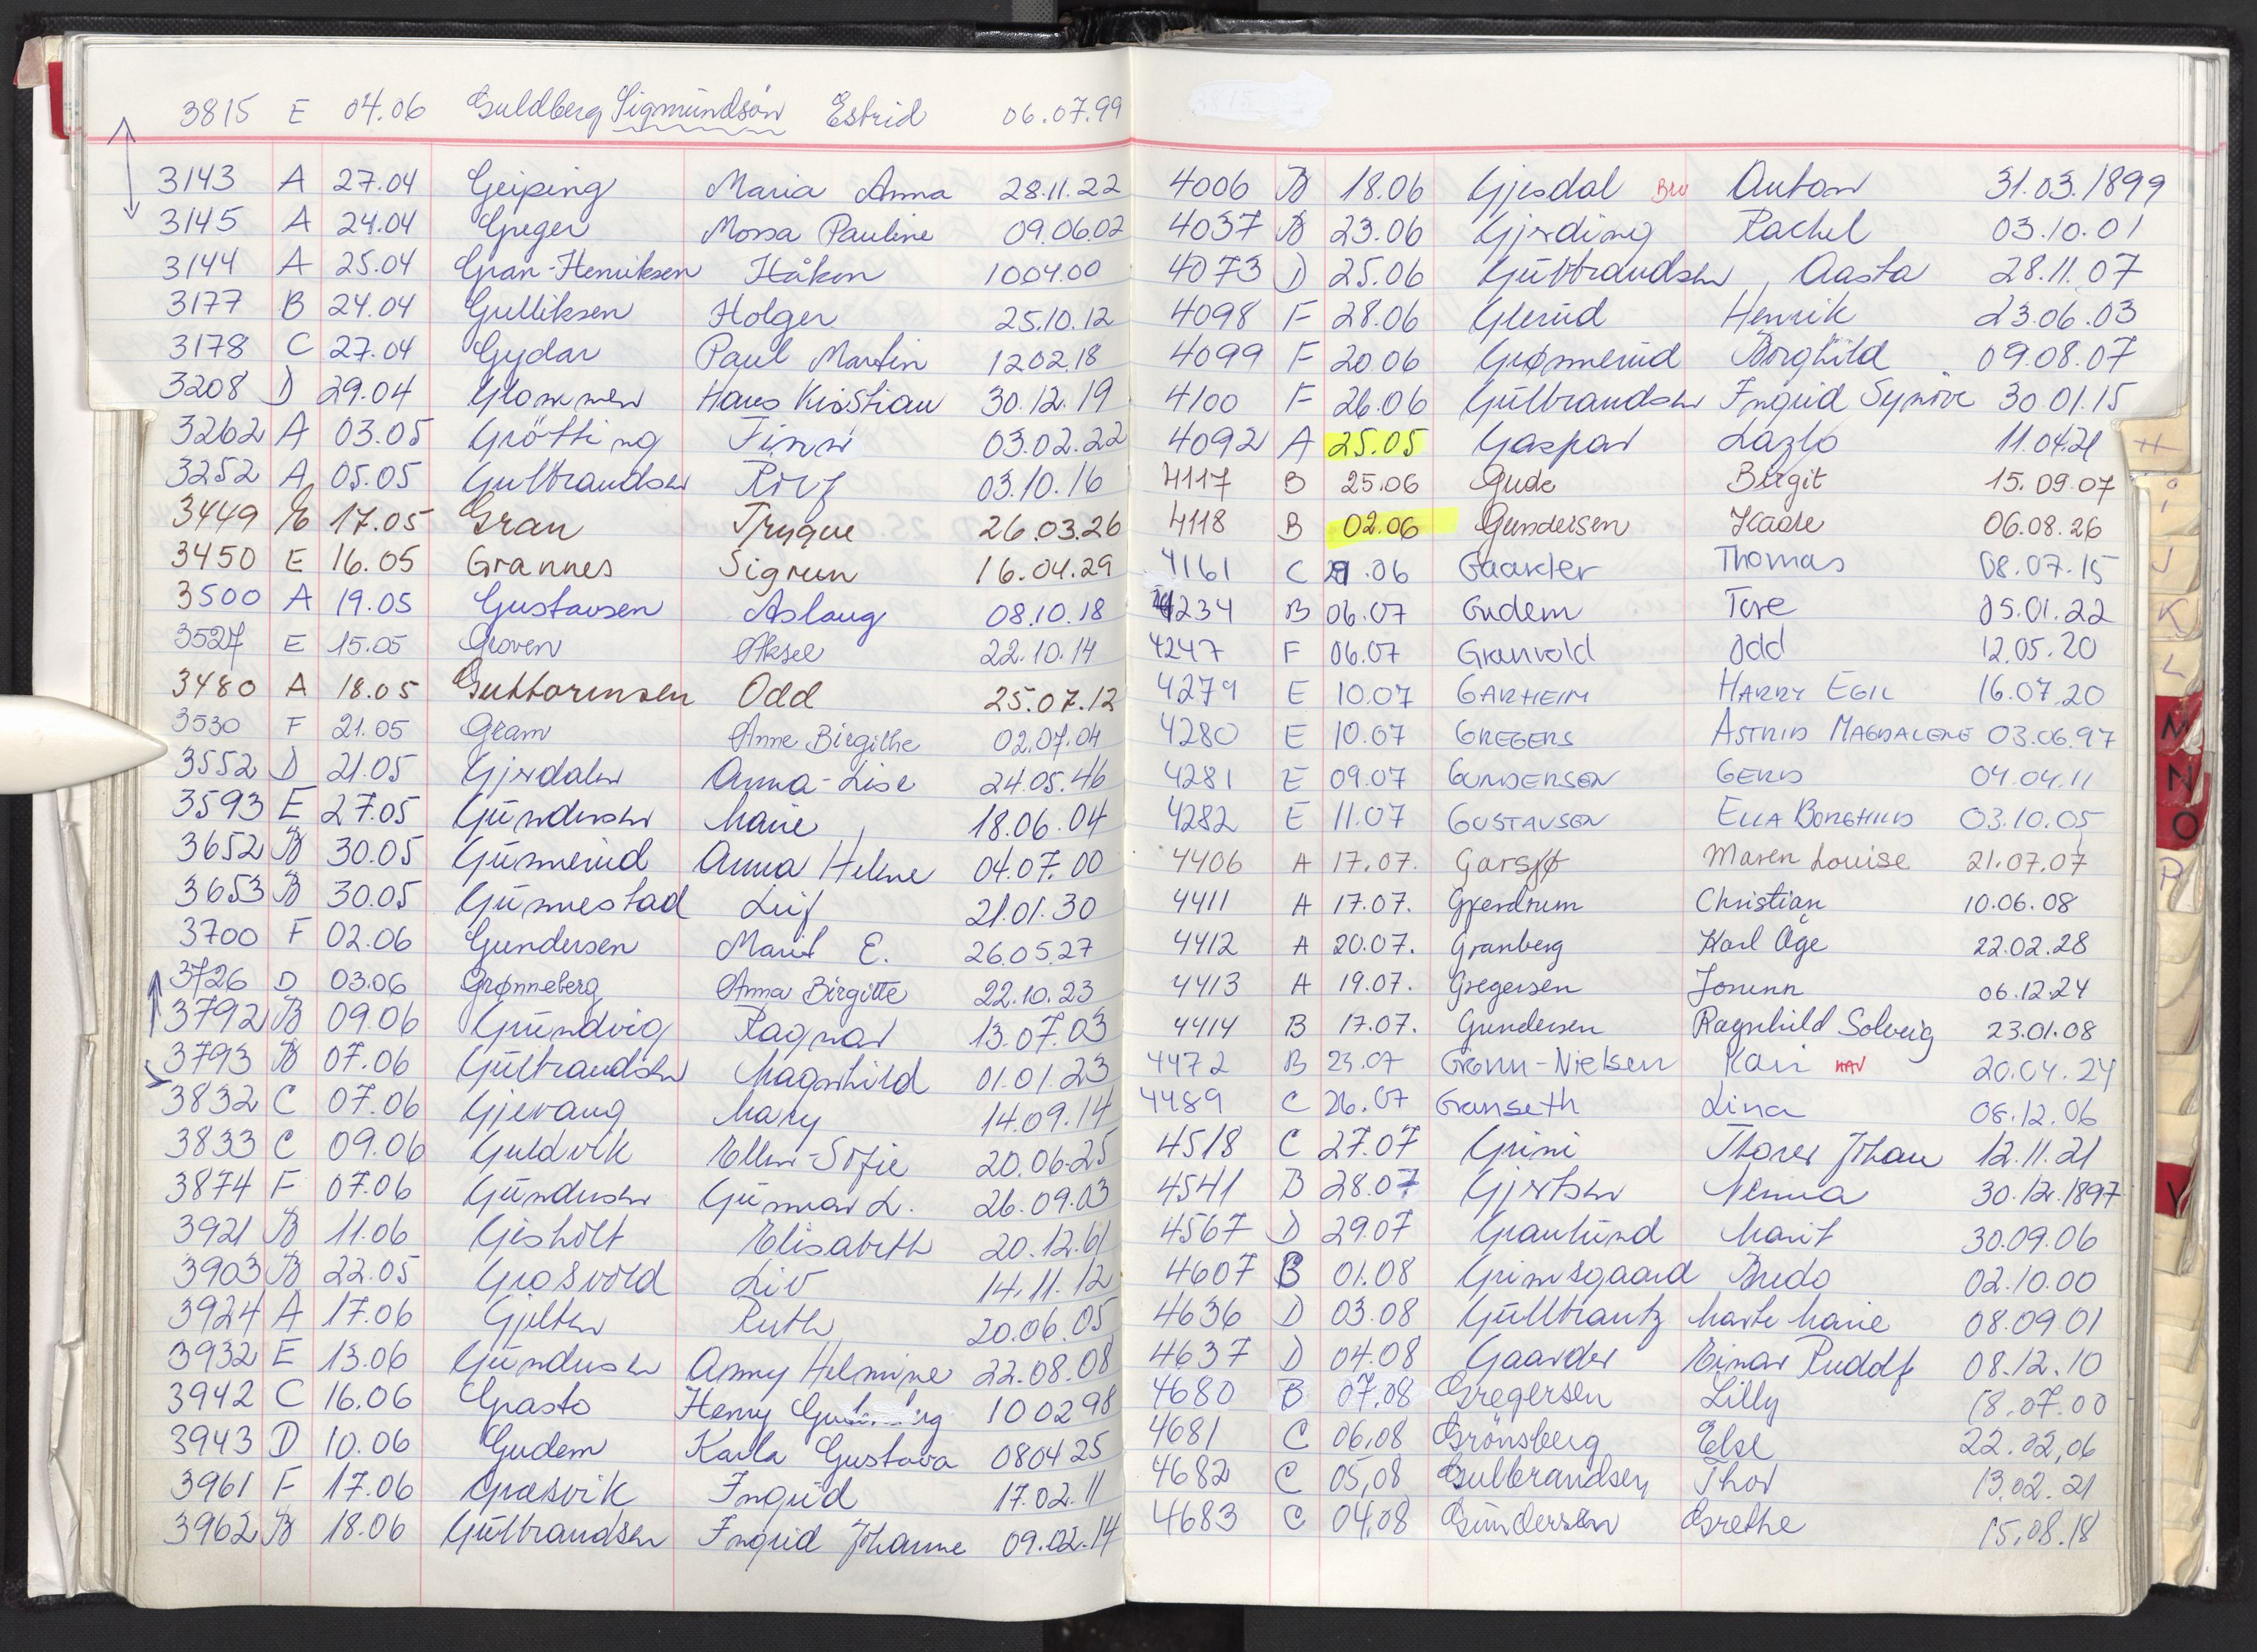 3815 E 04.06 Guldberg Sigmundsön Estrid 06.07.99
3143 A 27.04 Geiping Maria Anna 28.11.22
3145 A 24.04 Greger Mossa Pauline 09.06.02
3144 A 25.04 Gran-Henriksen Håkon 1004.00
3177 B 24.04 Gulliksen Holger 25.10.12
3178 C 27.04 Gydar Paul Martin 1202.18
3208 D 29.04 Glommen Hans Kristian 30.12.19
3262 A 03.05 Grötting Finn 03.02.22
3252 A 05.05 Gulbrandsen Rolf 03.10.16
3449 E 17.05 Gran Trygve 26.03.26
3450 E 16.05 Grannes Sigrun 16.04.29
3500 A 19.05 Gustavsen Aslaug 08.10.18
3527 E 15.05 Groven Aksel 22.10.14
3480 A 18.05 Guttormsen Odd 25.07.12
3530 F 21.05 Gram Anne Birgithe 02.07.04
3552 D 21.05 Gjerdalen Anna-Lise 24.05.46
3593 E 27.05 Gundersen Marie 18.06.04
3652 B 30.05 Gunnerud Anna Helene 04.07.00
3653 B 30.05 Gunnestad Leif 21.01.30
3700 F 02.06 Gundersen Marit E. 26.05.27
3726 D 03.06 Grønneberg Anna Birgitte 22.10.23
3792 B 09.06 Grundvig Ragnar 13.07.03
3793 B 07.06 Gulbrandsen Magnhild 01.01.23
3832 C 07.06 Gjevang Mary 14.09.14
3833 C 09.06 Guldvik Ellen-Sofie 20.06.25
3874 F 07.06 Gundersen Gunnar L. 26.09.03
3921 B 11.06 Gisholt Elisabeth 20.12.61
3903 B 22.05 Grosvold Liv 14.11.12
3924 A 17.06 Gjelten Ruth 20.06.05
3932 E 13.06 Gundersen Anny Helmine 22.08.08
3942 C 16.06 Grasto Henry 100298
3943 D 10.06 Gudem Karla Gustava 080425
3961 F 17.06 Græsvik Ingrid 17.02.11
3962 B 18.06 Gulbrandsen Ingrid Johanne 09.02.14
4006 B 18.06 Gjesdal BRU Anton 31.03.1899
4037 B 23.06 Gjerding Rachel 03.10.01
4073 D 25.06 Gulbrandsen Aasta 28.11.07
4098 F 28.06 Glerud Henrik 23.06.03
4099 F 20.06 Grønnerud Borghild 09.08.07
4100 F 26.06 Gulbrandsen Ingrid Synöve 30.01.15
4092 A 25.05 Gaspar Lazlo 11.04.21
4117 B 25.06 Gude Birgit 15.09.07
4118 B 02.06 Gundersen Kaare 06.08.26
4161 C 29.06 Gaarder Thomas 08.07.15
4234 B 06.07 Gudem Tore 05.01.22
4247 F 06.07 Granvold Odd 12.05.20
4279 E 10.07 GARHEIM HARRY EGIL 16.07.20
4280 E 10.07 GREGERS ASTRID MAGDALENE 03.06.97
4281 E 09.07 GUNDERSEN GERD 04.04.11
4282 E 11.07 GUSTAVSEN ELLA BORGHILD 03.10.05
4406 A 17.07. Garsjø Maren Louise 21.07.07
4411 A 17.07. Gjendrum Christian 10.06.08
4412 A 20.07. Granberg Karl Åge 22.02.28
4413 A 19.07. Gregersen Jorunn 06.12.24
4414 B 17.07. Gundersen Ragnhild Solveig 23.01.08
4472 B 23.07 Grønn-Nielsen Kari HAV 20.04.24
4489 C 26.07 Granseth Lina 08.12.06
4518 C 27.07 Grini Thorer Johan 12.11.21
4541 B 28.07 Gjertsen Nenna 30.12.1897
4567 D 29.07 Granlund Marit 30.09.06
4607 B 01.08 Grimsgaard Bredo 02.10.00
4636 D 03.08 Gullbrantz Marte Marie 08.09.01
4637 D 04.08 Gaarder Einar Rudolf 08.12.10
4680 B 07.08 Gregersen Lilly 18.07.00
4681 C 06,08 Grönsberg Else 22.02,06
4682 C 05,08 Gulbrandsen Thor 13.02.21
4683 C 04,08 Gundersen Grethe 15.08.18
H
I
J
K
L
M
N
O
P
V